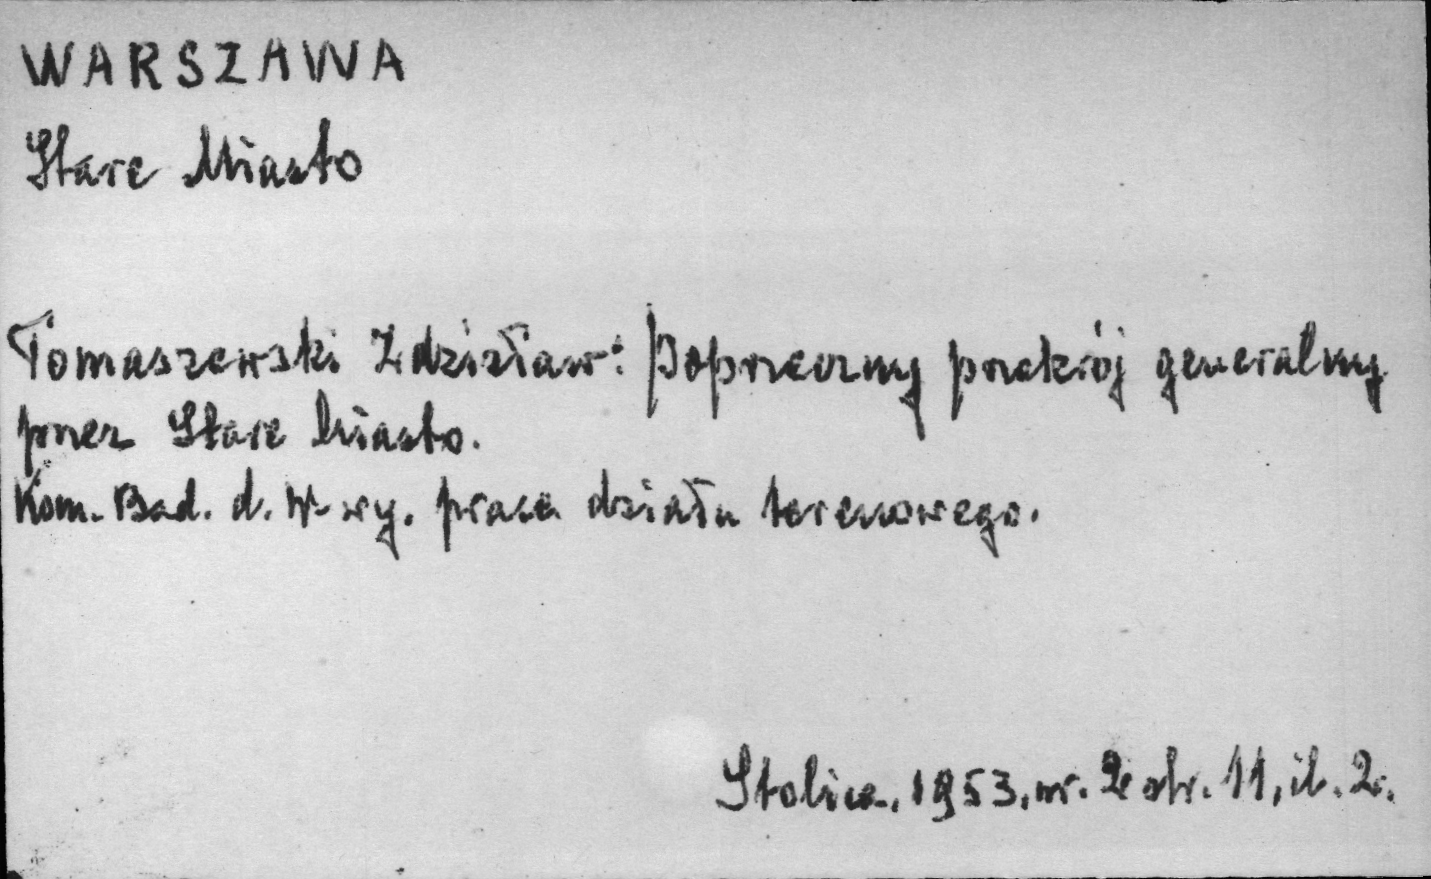 WARSZAWA
Stare Miasto
Tomaszewski Zdzisław: Poprzeczny przekrój generalny
przez Stare Miasto.
Kom. Bad. d. W-wy. praca działu terenowego.
Stolica, 1953, nr. 2 str. 11, il. 2.